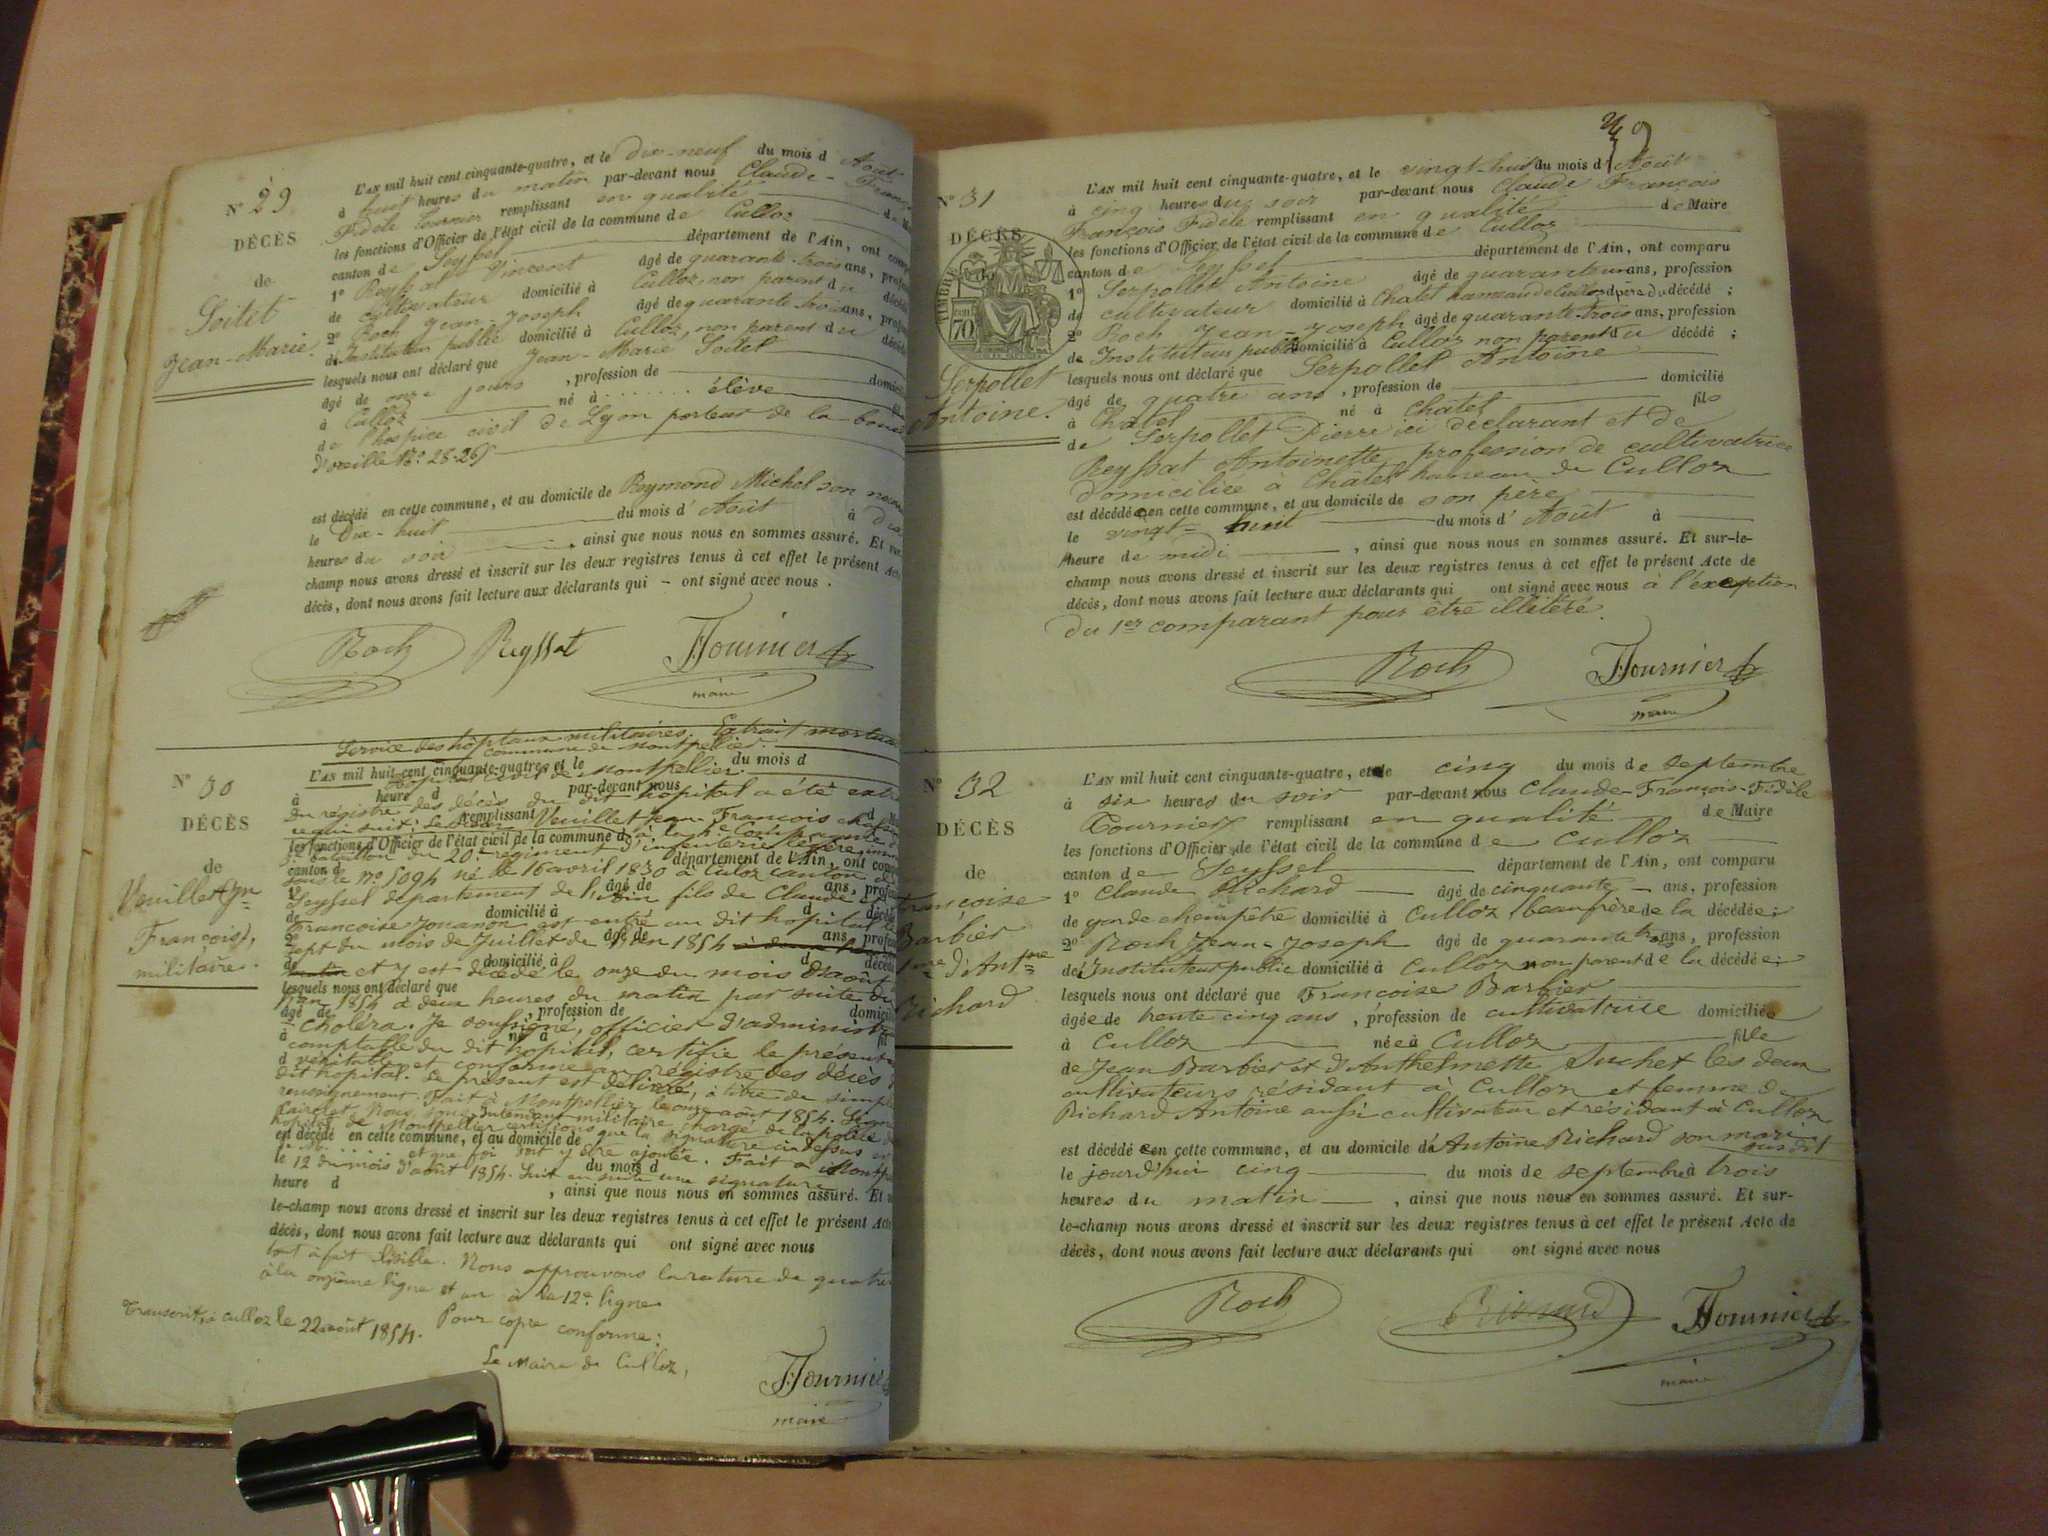 N° 29
DÉCÈS
de
Soitet
Jean-Marie.
L'AN mil huit cent cinquante-quatre, et le dix-neuf du mois d'Août
à huit heures du matin par-devant nous Claude-
Fidèle Tournier remplissant en qualité de
les fonctions d'Officier de l'état civil de la commune de Culloz
canton de Seyssel département de l'Ain, ont
1° Reyssat Vincent âgé de quarante-trois ans,
de cultivateur domicilié à Culloz non parent du
2° Roch Jean-Joseph âgé de quarante-trois ans,
de Instituteur public domicilié à Culloz, non parent du
lesquels nous ont déclaré que Jean-Marie Soitet
âgé de onze jours , profession de
à Culloz né à ........ élève
de l'hospice civil de Lyon porteur de la
d'oreille N°
est décédé en cette commune, et au domicile de Reymond Michel son
le Dix-huit du mois d'Août à
heures du soir , ainsi que nous nous en sommes assuré. Et
champ nous avons dressé et inscrit sur les deux registres tenus à cet effet le présent Acte
décès, dont nous avons fait lecture aux déclarants qui - ont signé avec nous .
Roch Reyssat Fournier
maire
N° 30
DÉCÈS
de
Veuillet Jn
François,
militaire.
Service des hôpitaux militaires. Extrait
commune de Montpellier.
L'AN mil huit cent cinquante-quatre, et le du mois d
hôpital civil de Montpellier
à heure d par-devant nous
du registre des décès du dit hopital a été
remplissant
Veuillet Jean François
les fonctions d'Officier de l'état civil de la commune d
bataillon du 20e régiment d'infanterie légère
canton d département de l'Ain, ont
sous le n° 5094 né le 16 avril 1830 à Culoz canton de
Seyssel département de l'Ain fils de Claude et
Françoise Jouanon est entré au dit hopital le
sept du mois de Juillet de l'an 1854
et y est décédé le onze du mois d'août
lesquels nous ont déclaré que
l'an 1854 à deux heures du matin par suite du
âgé de , profession de
choléra. Je soussigné, officier d'administ
comptable du dit hopital, certifie le présent
véritable et conforme au registre des décès
dit hopital. Le présent est délivré, à titre de simple
renseignement. Fait à Montpellier le onze août 1854.
est décédé en cette commune, et au domicile de
que la signature ci-dessus
et que foi doit y être ajoutée. Fait à
le 12 du mois d'août 1854. Suit en suite une signature
heure d , ainsi que nous nous en sommes assuré. Et
le-champ nous avons dressé et inscrit sur les deux registres tenus à cet effet le présent Acte
décès, dont nous avons fait lecture aux déclarants qui ont signé avec nous
tout à fait lisible. Nous approuvons la rature de quatre
à la onzième ligne et un à la 12e ligne
Transcrit à Culloz le 22 août 1854. Pour copie conforme:
Le Maire de Culloz,
Fournier
maire
N° 31
DÉCÈS
TIMBRE
70
Serpollet
Antoine.
L'AN mil huit cent cinquante-quatre, et le vingt-huit du mois d'Août
à cinq heures du soir par-devant nous Claude François
François Fidèle remplissant en qualité de Maire
les fonctions d'Officier de l'état civil de la commune de Culloz
canton de Seyssel département de l'Ain, ont comparu
1° Serpollet Antoine âgé de quarante un ans, profession
de cultivateur domicilié à Chatel hameau de Culloz père du décédé ;
2° Roch Jean-Joseph âgé de quarante-trois ans, profession
de Instituteur public domicilié à Culloz non parent du décédé ;
lesquels nous ont déclaré que Serpollet Antoine
âgé de quatre ans , profession de domicilié
à Chatel né à Châtel fils
de Serpollet Pierre ici déclarant et de
Reyssat Antoinette profession de cultivatrice
domiciliée à Chatel hameau de Culloz
est décédé en cette commune, et au domicile de son père
le vingt-huit du mois d'Août à
heure de midi , ainsi que nous nous en sommes assuré. Et sur-le-
champ nous avons dressé et inscrit sur les deux registres tenus à cet effet le présent Acte de
décès, dont nous avons fait lecture aux déclarants qui ont signé avec nous à l'exception
du 1er comparant pour être illitéré.
Roch Fournier
maire
N° 32
DÉCÈS
de
Françoise
Barbier
d'Antne
Richard
L'AN mil huit cent cinquante-quatre, et le cinq du mois de septembre
à six heures du soir par-devant nous Claude-François-Fidèle
Tournier remplissant en qualité de Maire
les fonctions d'Officier de l'état civil de la commune de Culloz
canton de Seyssel département de l'Ain, ont comparu
1° Claude Richard âgé de cinquante ans, profession
de garde champêtre domicilié à Culloz, beau frère de la décédée;
2° Roch Jean-Joseph âgé de quarante trois ans, profession
de Instituteur public domicilié à Culloz non parent de la décédée;
lesquels nous ont déclaré que Françoise Barbier
âgée de trente cinq ans , profession de cultivatrice domiciliée
à Culloz née à Culloz fille
de Jean Barbier et d'Anthelmette Juchet les deux
cultivateurs résidant à Culloz et femme de
Richard Antoine aussi cultivateur et résidant à Culloz
est décédée en cette commune, et au domicile d'Antoine Richard son mari
susdit
le jourd'hui cinq du mois de septembre à trois
heures du matin , ainsi que nous nous en sommes assuré. Et sur-
le-champ nous avons dressé et inscrit sur les deux registres tenus à cet effet le présent Acte de
décès, dont nous avons fait lecture aux déclarants qui ont signé avec nous
Roch Richard Fournier
maire